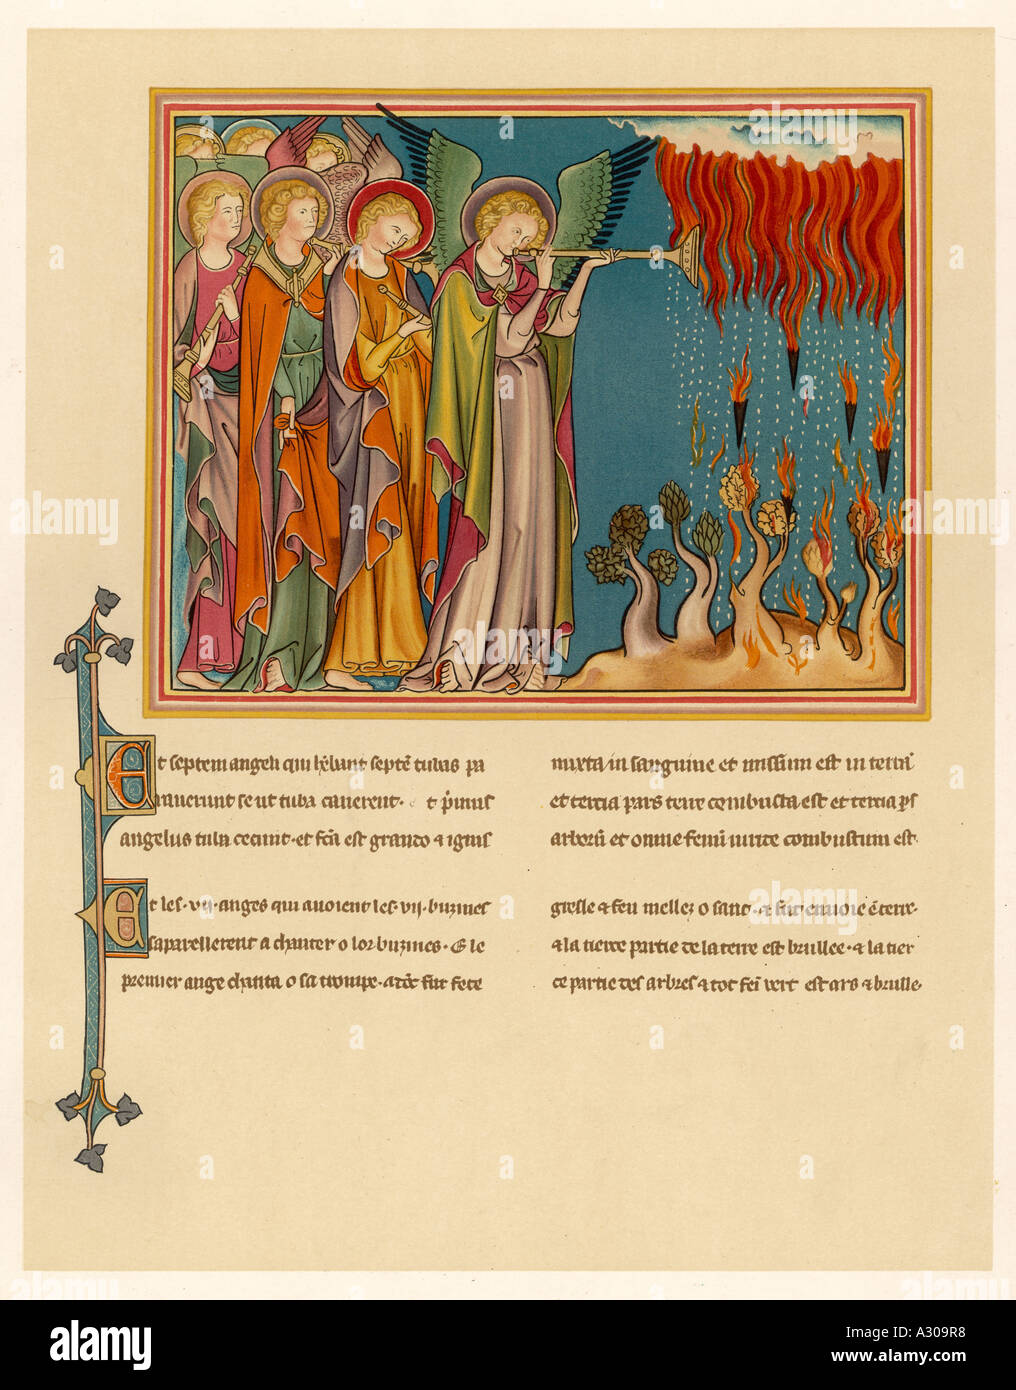 Et septem angeli qui hēbant septē tubas pa
raverunt se ut tuba caverent. et p̄mus
angelus tuba cecinit. et fcā est grando & ignis
mixta in sanguine et missum est in terrā
et tercia pars terre combusta est et tercia ps
arborū et omne fenū viride combustum est.
Et les .vij. anges qui avoient les .vij. buzines
saparellerent a chanter o lor buzines. & le
premier ange chanta o sa trompe. & dōt fut fete
gresle & feu mellez o sanc. & fut envoie ē terre.
& la tierce partie de la terre est brullee. & la tier
ce partie des arbres & tot fein vert est ars & brulle.
alamy
alamy
alamy
alamy
alamy
alamy
alamy
alamy
Image ID: A309R8
www.alamy.com